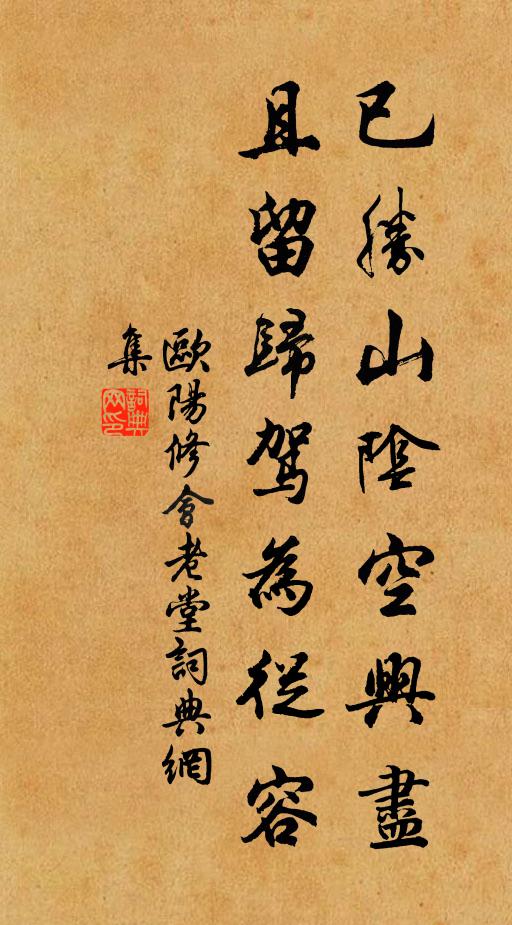 已勝山陰空興盡
且留歸駕為從容
歐陽修會老堂詞典網
集
詞典
网印